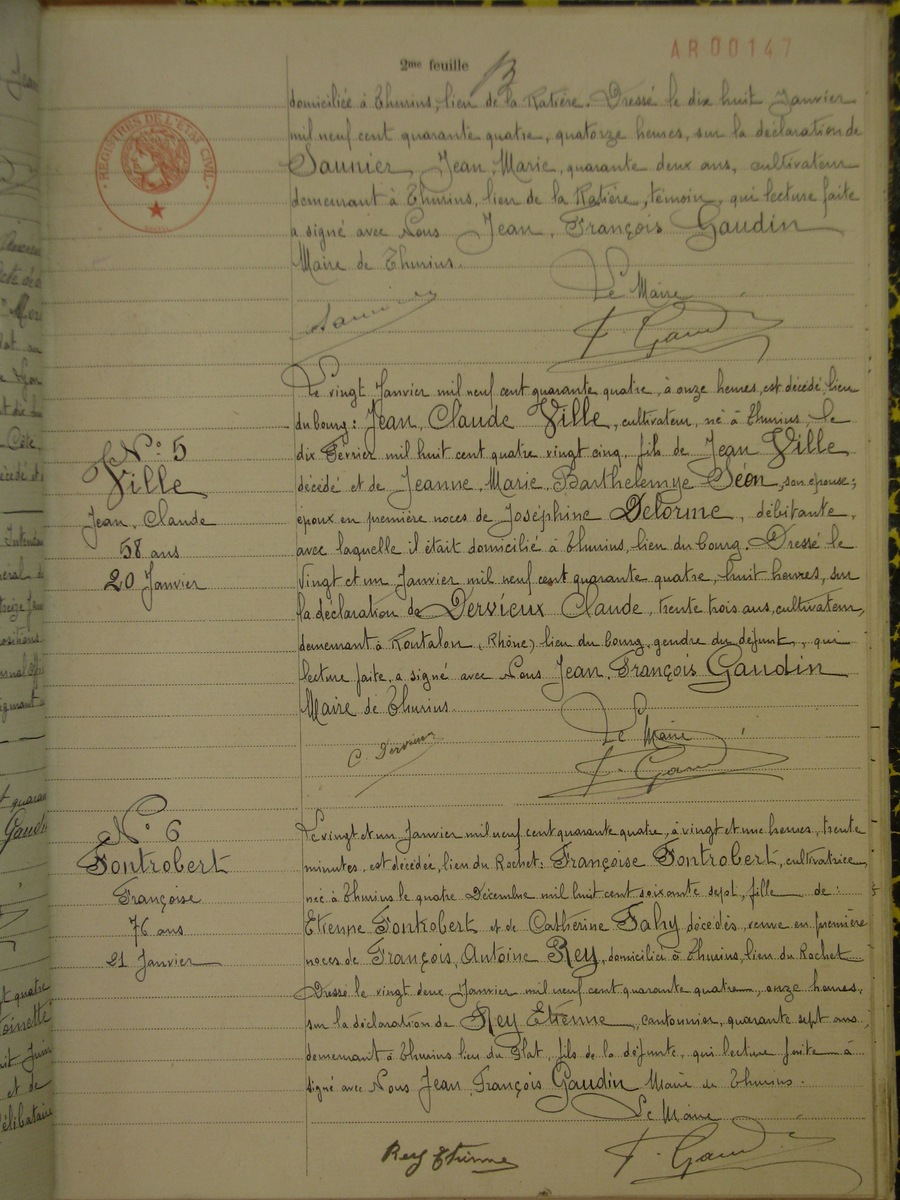 AR00147
2me feuille
REGISTRES DE L'ÉTAT CIVIL
domiciliée à Thurins, lieu de la Ratière. Dressé le dix huit Janvier
mil neuf cent quarante quatre, quatorze heures, sur la déclaration de
Saunier, Jean, Marie, quarante deux ans, cultivateur
demeurant à Thurins, lieu de la Ratière, témoin, qui lecture faite
a signé avec Nous Jean, François Gaudin
Maire de Thurins.
Le Maire
Saunier
F. Gaudin
Le vingt Janvier mil neuf cent quarante quatre, à onze heures, est décédé, lieu
du bourg: Jean, Claude Ville, cultivateur, né à Thurins, le
dix Février mil huit cent quatre vingt cinq, fils de Jean Ville
décédé et de Jeanne, Marie, Barthelemye Séon, son épouse;
époux en première noces de Joséphine Delorme, débitante,
avec laquelle il était domicilié à Thurins, lieu du bourg. Dressé le
vingt et un Janvier mil neuf cent quarante quatre, huit heures, sur
la déclaration de Dervieux Claude, trente trois ans, cultivateur,
demeurant à Rontalon (Rhône) lieu du bourg, gendre du défunt, qui
lecture faite, a signé avec Nous Jean, François Gaudin
Maire de Thurins.
N° 5
Ville
Jean, Claude
58 ans
20 Janvier
Le Maire
C. Dervieux
F. Gaudin
N° 6
Fontrobert
Françoise
76 ans
21 Janvier
Le vingt et un Janvier mil neuf cent quarante quatre, à vingt et une heures, trente
minutes, est décédée, lieu du Rochet: Françoise Fontrobert, cultivatrice,
née à Thurins le quatre Décembre mil huit cent soixante sept, fille de:
Etienne Fontrobert et de Catherine Fahy décédés, veuve en première
noces de François, Antoine Rey, domiciliée à Thurins, lieu du Rochet
Dressé le vingt deux Janvier mil neuf cent quarante quatre, onze heures,
sur la déclaration de Rey Etienne, cantonnier, quarante sept ans
demeurant à Thurins lieu du Plat, fils de la défunte, qui lecture faite à
signé avec Nous Jean, François Gaudin Maire de Thurins.
Le Maire
Rey Etienne
F. Gaudin